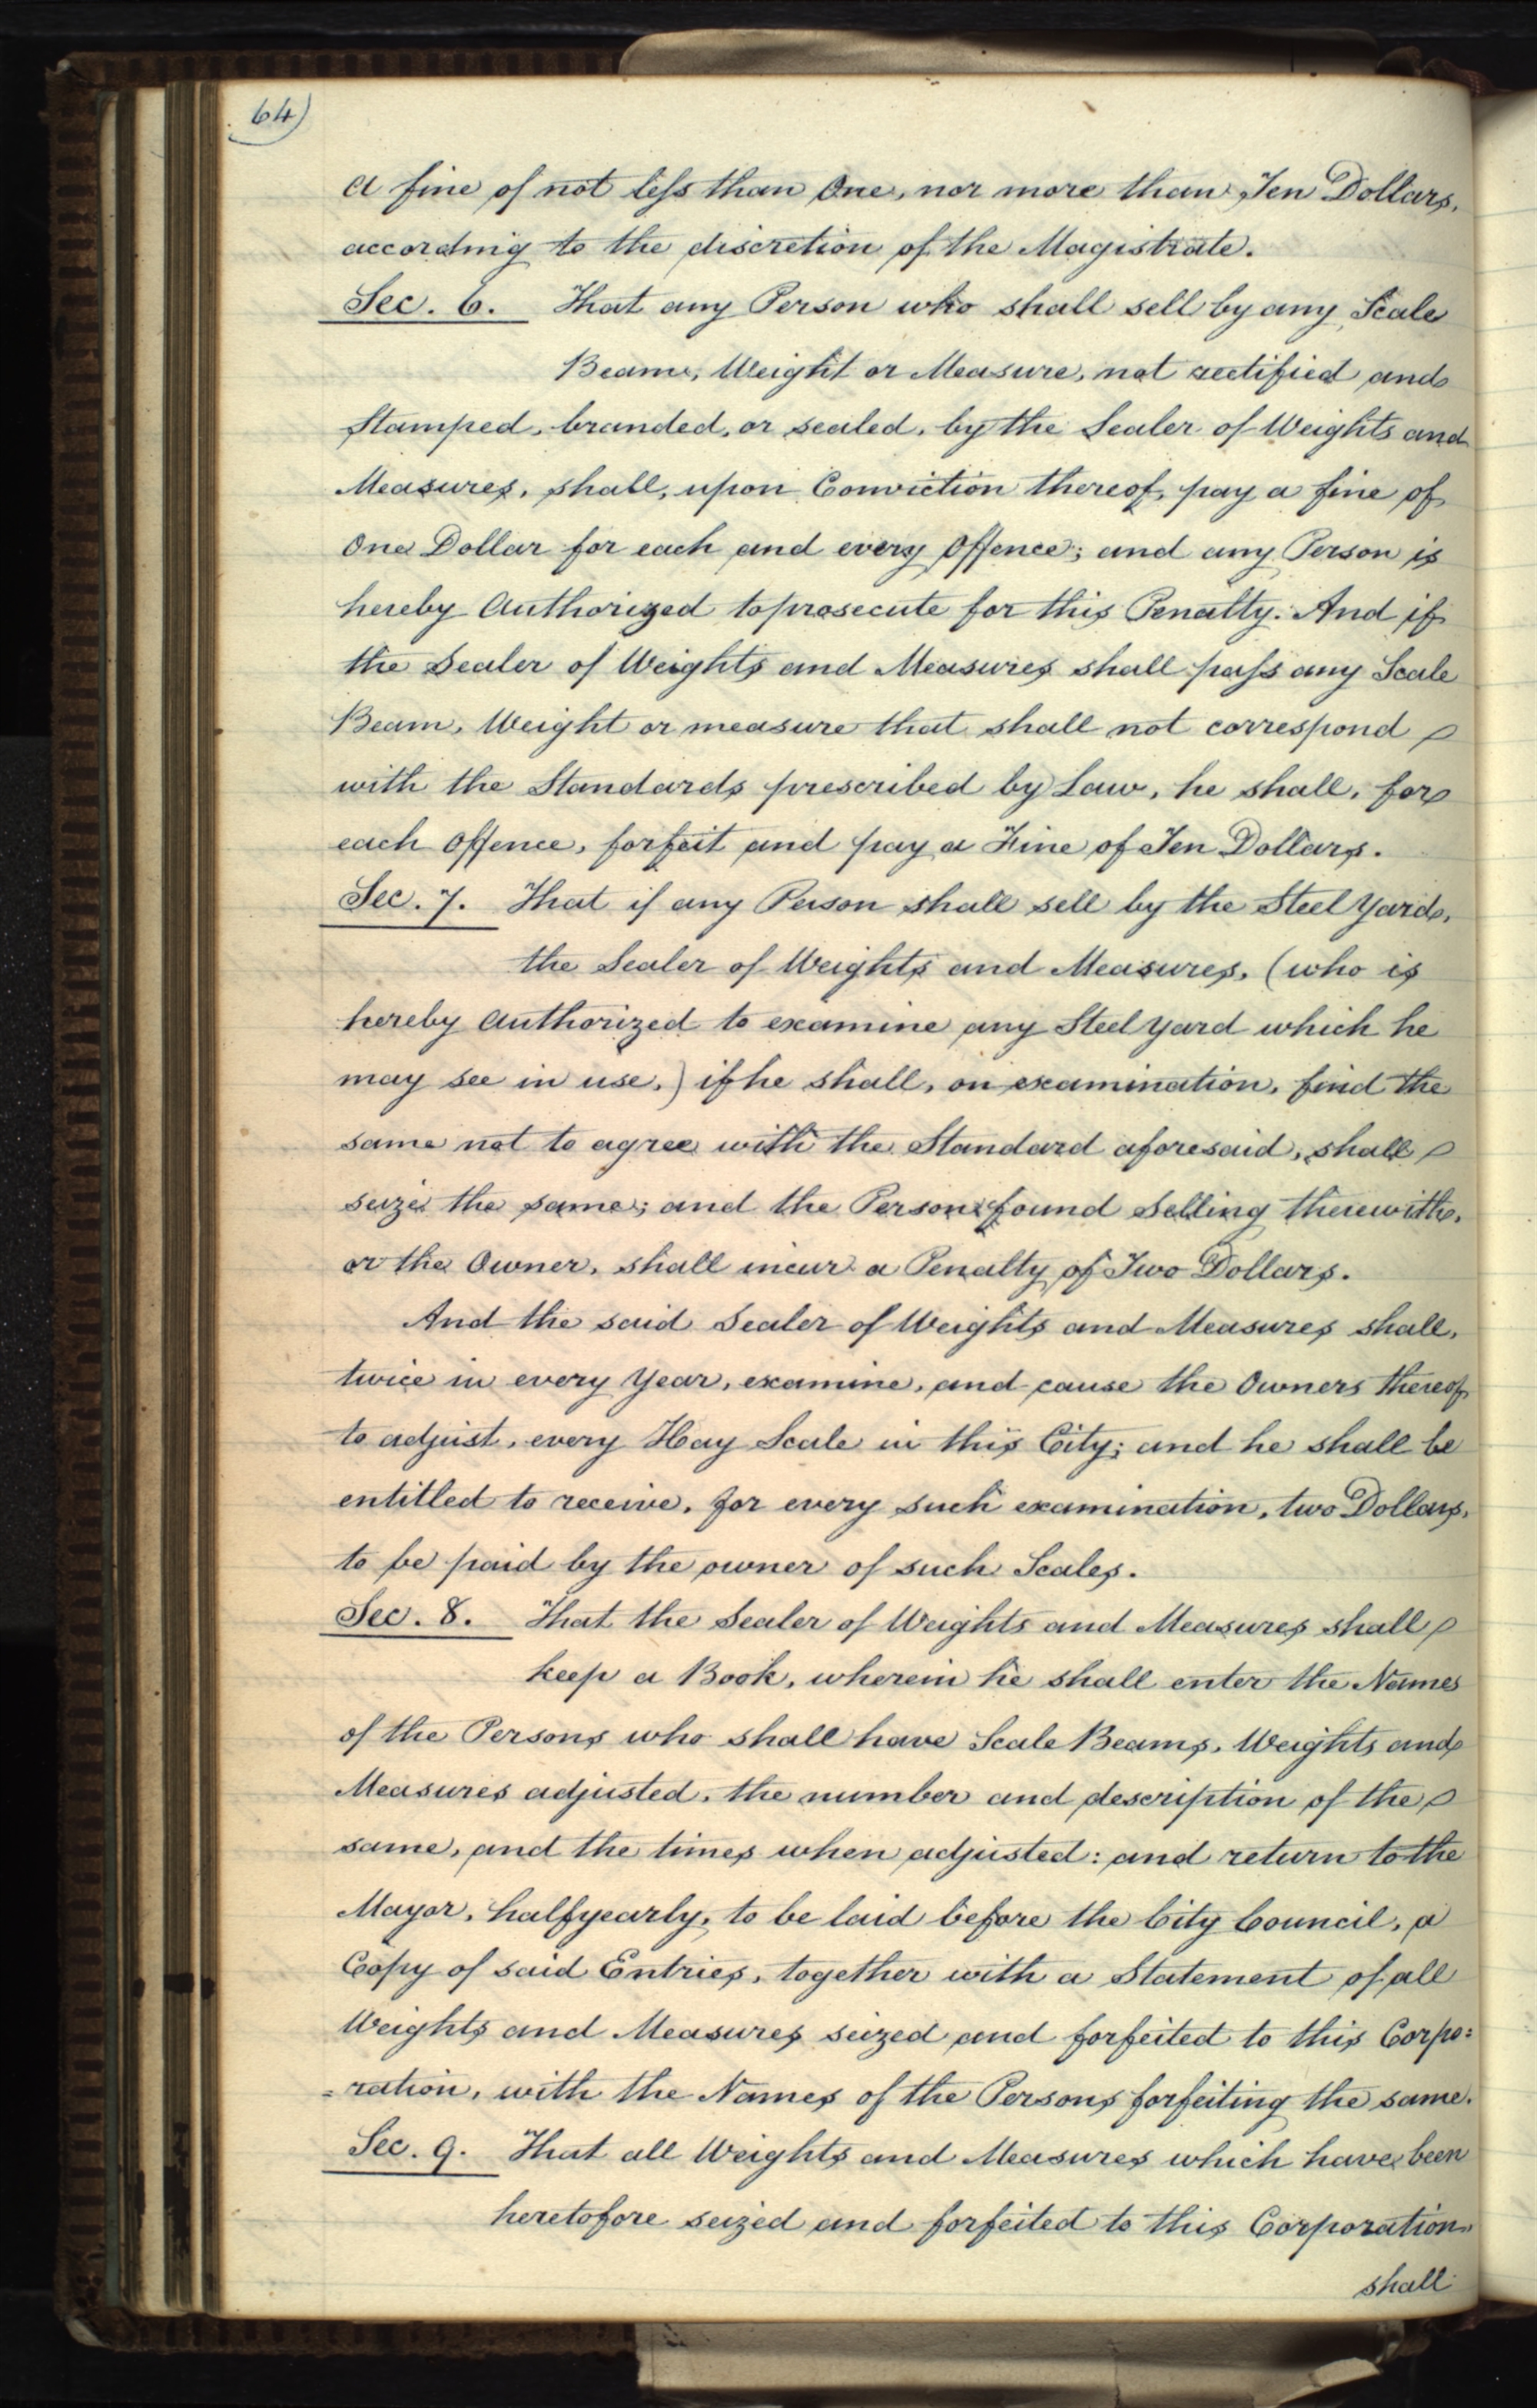 64)
A fine of not less than One, nor more than Ten Dollars,
according to the discretion of the Magistrate.
Sec. 6. That any Person who shall sell by any Scale
Beam, Weight or Measure, not rectified and
Stamped, branded, or sealed, by the Sealer of Weights and
Measures, shall, upon Conviction thereof, pay a fine of
One Dollar for each and every Offence; and any Person is
hereby Authorized to prosecute for this Penalty. And if
the Sealer of Weights and Measures shall pass any Scale
Beam, Weight or measure that shall not correspond
with the Standards prescribed by Law, he shall, for
each Offence, forfeit and pay a Fine of Ten Dollars.
Sec. 7. That if any Person shall sell by the Steel Yard,
the Sealer of Weights and Measures, (who is
hereby Authorized to examine any Steel Yard which he
may see in use,) if he shall, on examination, find the
same not to agree with the Standard aforesaid, shall
seize the same; and the Person found Selling therewith,
or the Owner, shall incur a Penalty of Two Dollars.
And the said Sealer of Weights and Measures shall,
twice in every Year, examine, and cause the Owners thereof
to adjust, every Hay Scale in this City; and he shall be
entitled to receive, for every such examination, two Dollars,
to be paid by the owner of such Scales.
Sec. 8. That the Sealer of Weights and Measures shall
keep a Book, wherein he shall enter the Names
of the Persons who shall have Scale Beams, Weights and
Measures adjusted, the number and description of the
same, and the times when adjusted: and return to the
Mayor, half yearly, to be laid before the City Council, a
Copy of said Entries, together with a Statement of all
Weights and Measures seized and forfeited to this Corpo=
=ration, with the Names of the Persons forfeiting the same.
Sec. 9. That all Weights and Measures which have been
heretofore seized and forfeited to this Corporation,
shall